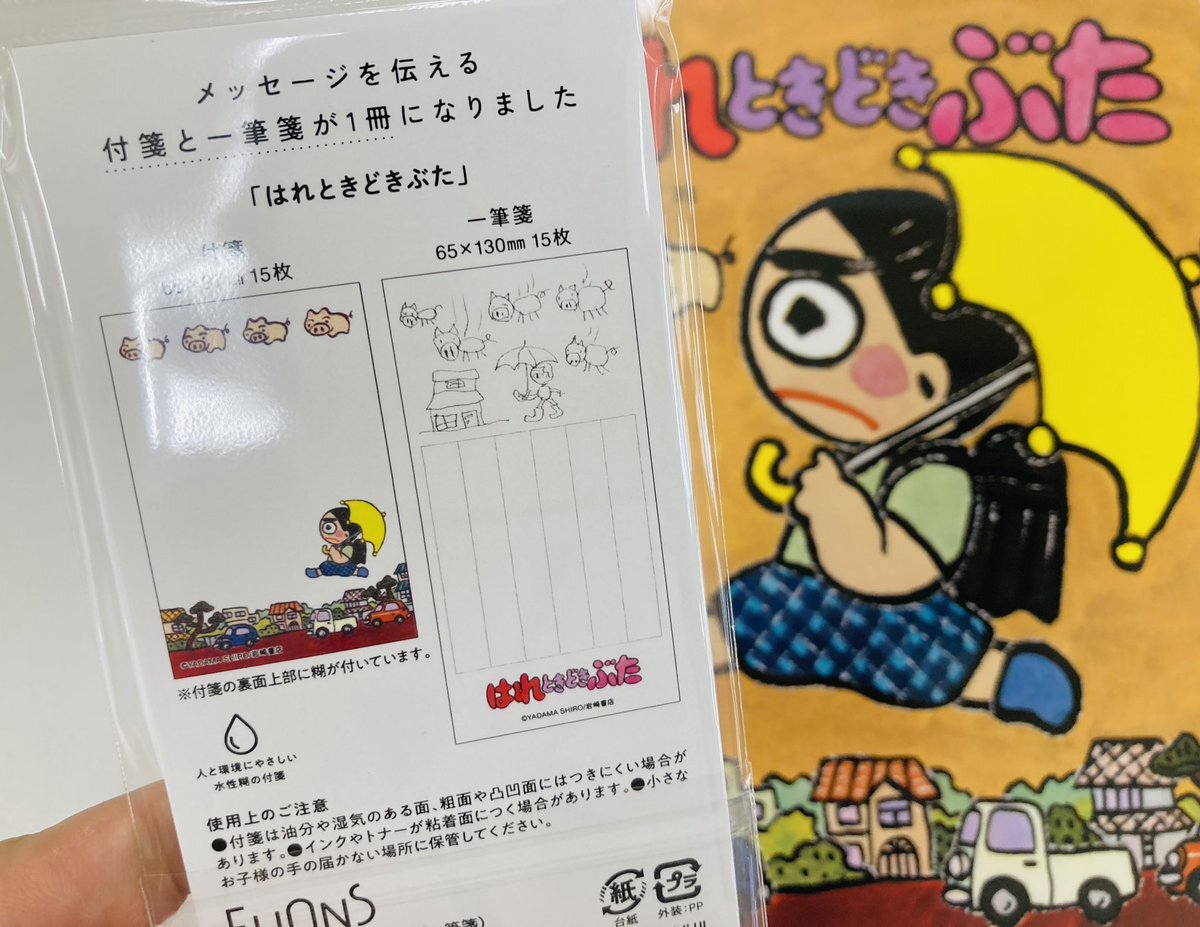 メッセージを伝える
付箋と一筆箋が1冊になりました
「はれときどきぶた」
付箋
15枚
一筆箋
65×130㎜ 15枚
©YADAMA SHIRO/岩崎書店
※付箋の裏面上部に糊が付いています。
はれときどきぶた
©YADAMA SHIRO/岩崎書店
人と環境にやさしい
水性糊の付箋
使用上のご注意
●付箋は油分や湿気のある面、粗面や凸凹面にはつきにくい場合が
あります。●インクやトナーが粘着面につく場合があります。●小さな
お子様の手の届かない場所に保管してください。
紙
台紙
プラ
外装:PP
れときどきぶた